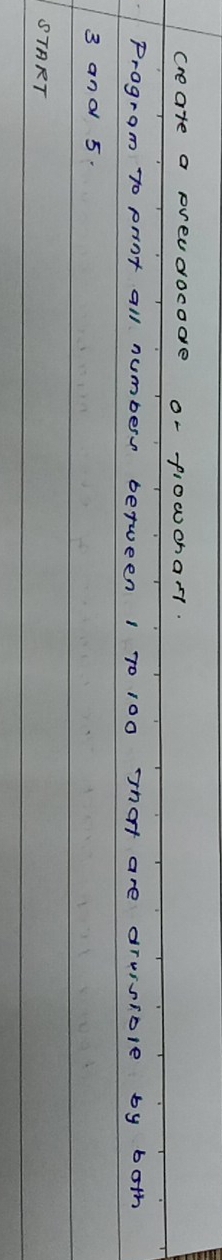 Create a pseudocode or flowchart.
Program to print all numbers between 1 To 100 That are divisible by both
3 and 5.
START